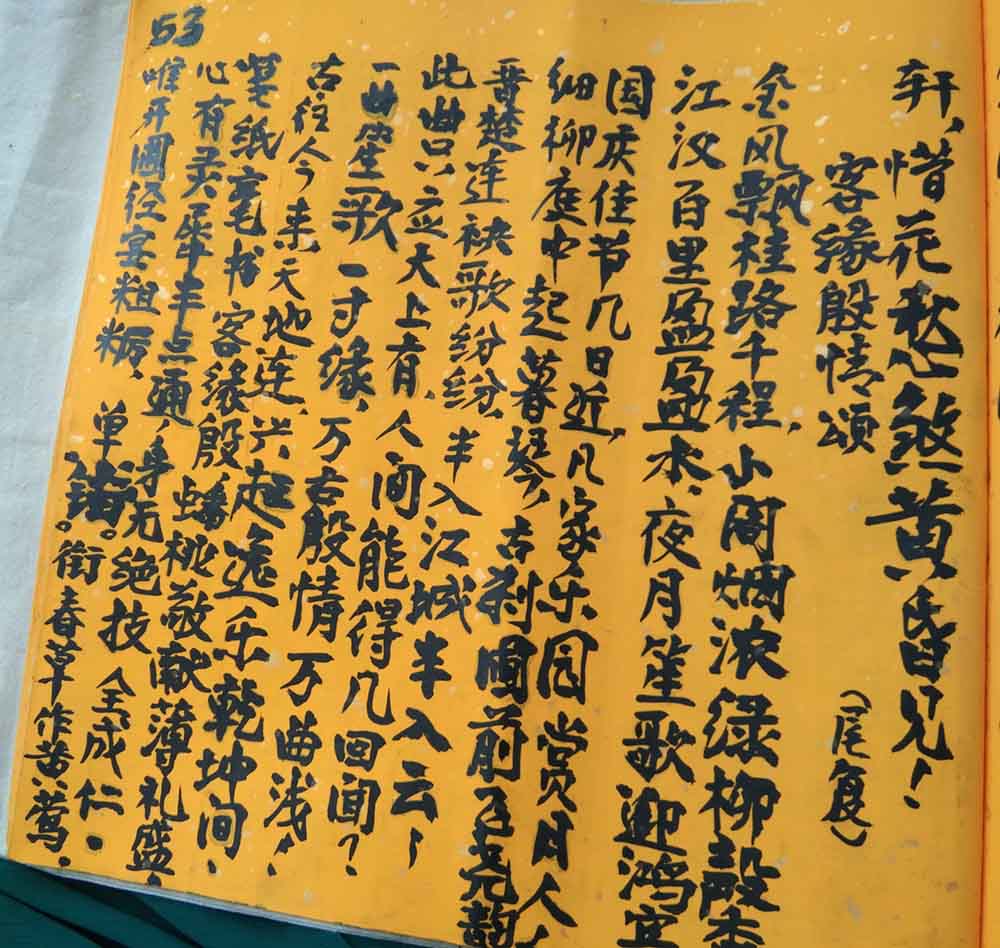 53
轩,惜花愁煞黄昏兄!
客缘殷情颂
(尾篇)
金风飘桂路千程,小阁烟浓绿柳
江汉百里盈盈水,夜月笙歌迎鸿宾
国庆佳节几日近,几家乐园赏月人,
细柳庭中起暮琴,古刹圃前
晋楚连袂歌纷纷,半入江城半入云,
此曲只应天上有,人间能得几回闻?
一曲笙歌一寸缘,万古殷情万曲浅!
古往今来天地连,兴起逸乐乾坤间,
笔纸毫书客缘殷,蟠桃敬献薄礼盛,
心有灵犀半点通,身无绝技全成仁.
唯开圃经宴粗粝,单 。街春草作黄莺.